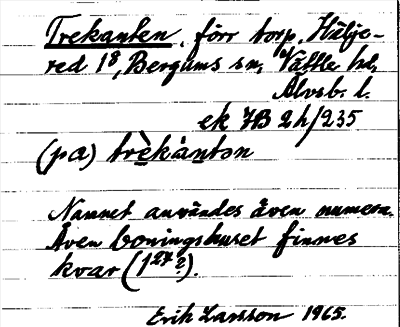 Trekanten, förr torp, Hülje-
red 1⁸, Bergums sn, Vättle hd,
Älvsb. l.
ek 7B 2h/235
(pa) trèkàntən
Namnet användes även numera.
Även boningshuset finnes
kvar (1²⁷?).
Erik Larsson 1965.